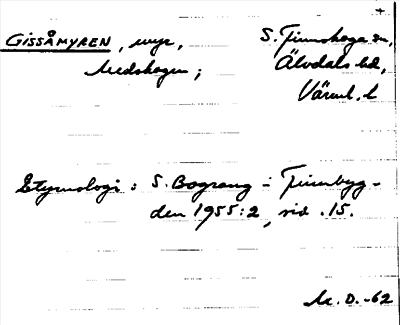 +
GISSÅMYREN, myr, S. Finnskoga sn,
Medskogen; Älvdals hd,
Värml. l
Etymologi: S. Bograng i Finnbyg-
den 1955:2, sid. 15.
M. O. -62